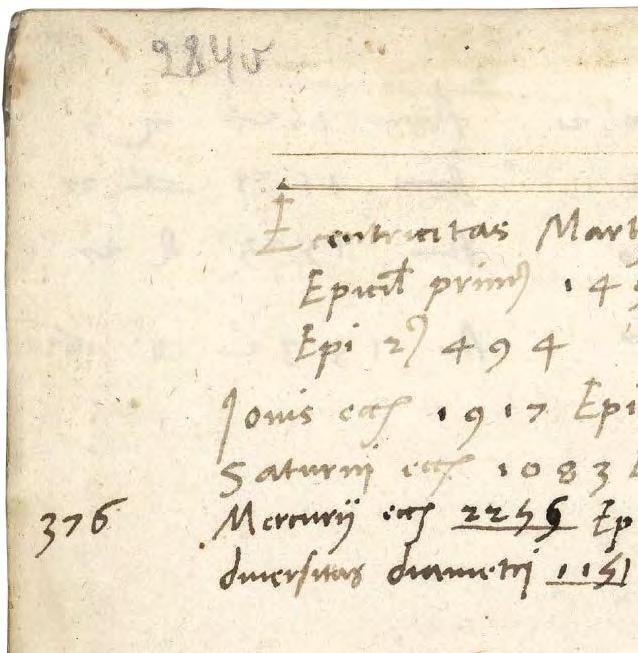 284v
Ecentricitas Mar
Epicil primꝰ 14
Epi 2ꝰ 494
Jouis ecc 1917 Epi
Saturni ecc 1083
376 Mercurij ecc 2256 Ep
diuersitas diametri 1151